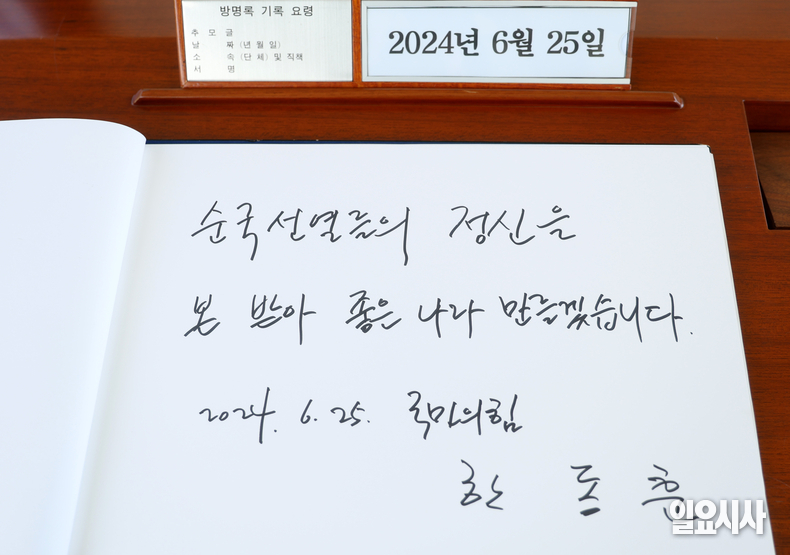 방명록 기록 요령
추 모 글
날 짜 (년 월 일)
소 속 (단 체) 및 직책
서 명
2024년 6월 25일
순국선열들의 정신을
본 받아 좋은 나라 만들겠습니다.
2024. 6. 25. 국민의힘
한 동 훈
일요시사